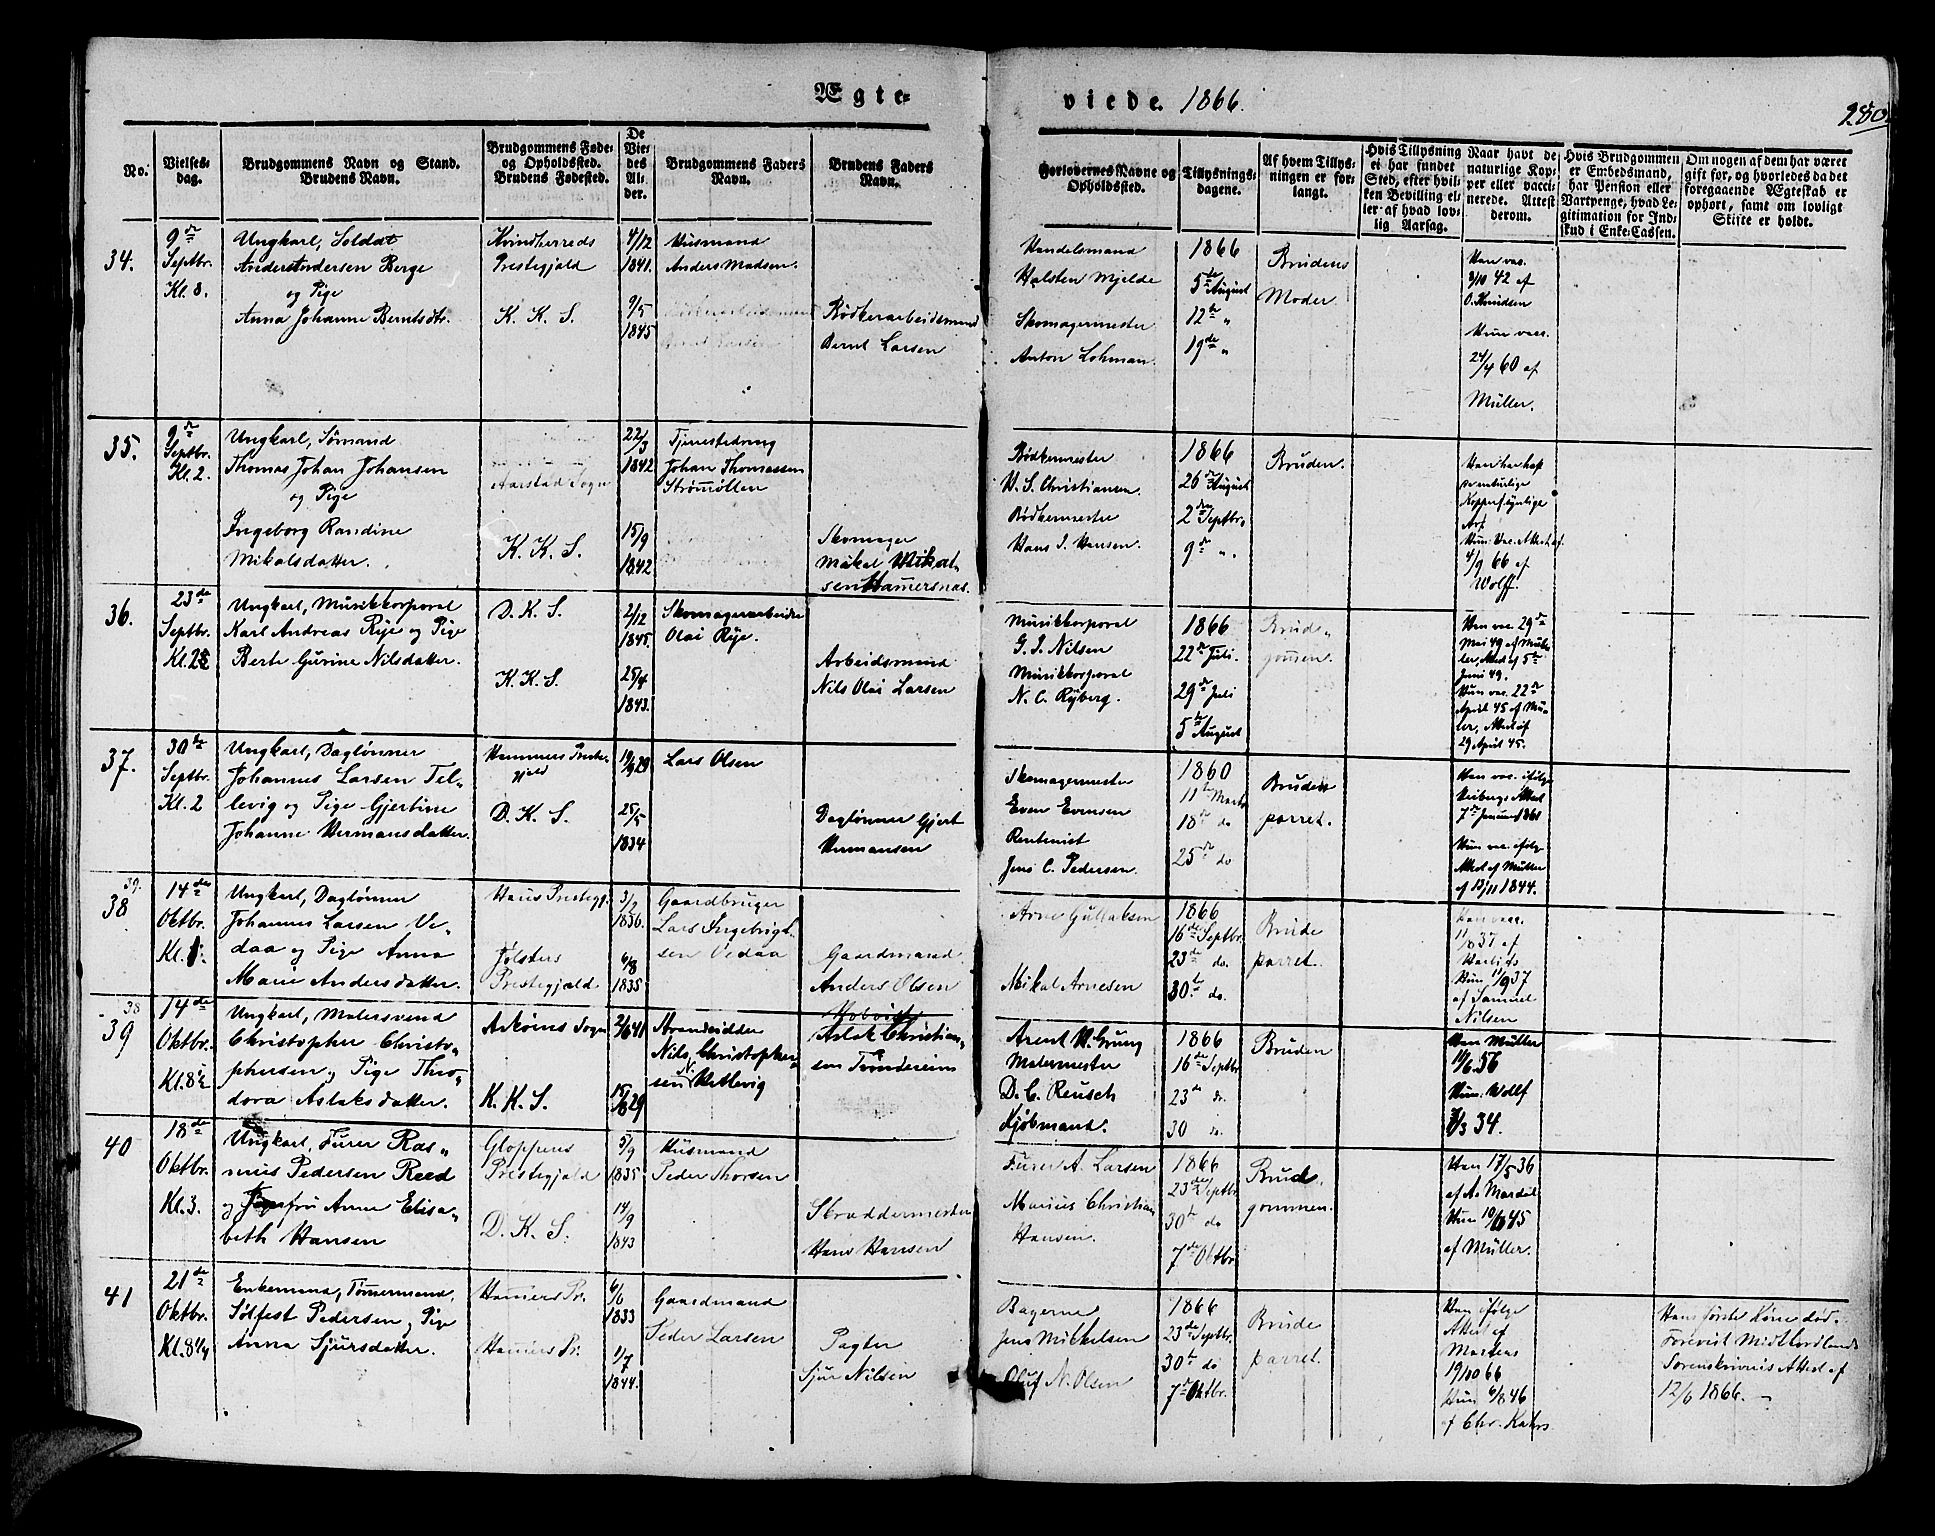 Ægte-
viede. 1866.
280
No.
Vielses-
dag.
Brudgommens Navn og Stand.
Brudens Navn.
Brudgommens Føde-
og Opholdsted.
Brudens Fødested.
De
Vie-
des
Al-
der.
Brudgommens Faders
Navn.
Brudens Faders
Navn.
Forlovernes Navne og
Opholdsted.
Tillysnings-
dagene.
Af hvem Tillys-
ningen er for-
langt.
Hvis Tillysning
ei har fundet
Sted, efter hvil-
ken Bevilling el-
ler af hvad lov-
lig Aarsag.
Naar havt de
naturlige Kop-
per eller vacci-
nerede. Attest
derom.
Hvis Brudgommen
er Embedsmand,
har Pension eller
Vartpenge, hvad Le-
gitimation for Ind-
skud i Enke-Cassen.
Om nogen af dem har været
gift før, og hvorledes da det
foregaaende Ægteskab er
ophørt, samt om lovligt
Skifte er holdt.
34.
9de
Septbr.
Kl. 8.
Ungkarl, Soldat
Anders Andersen Berge
og Pige
Anna Johanne Berntsdtr.
Kvindherreds
Prestegjæld
K. K. S.
4/12
1841.
9/5
1845
Husmand
Anders Madsen.
Bødkerarbeidsmand
Bernt Larsen
Handelsmand
Halsten Mjelde
Skomagermester
Anton Lohman.
1866
5te August
12te "
19de "
Brudens
Moder.
Han vac.
3/10 42 af
O. Knudsen
Hun vacc.
24/4 60 af
Müller.
35.
9de
Septbr.
Kl. 2.
Ungkarl, Sømand
Thomas Johan Johansen
og Pige
Ingeborg Randine
Mikalsdatter.
Aarstad Sogn
K. K. S.
22/3
1842
15/9
1842.
Tjenestedreng
Johan Thomassen
Strømøllen
Skomager
Mikal Mikal-
sen Hamersnas.
Bødkermester
W. S. Christiansen.
Bødkermester
Hans J. Hansen.
1866
26de August
2den Septbr.
9de ".
Bruden.
Han har haft
naturlige
Kopper, synlige
Ar.
Hun. Vac. Attest af
4/9 66 af
Wolff.
36.
23de
Septbr.
Ungkarl, Musikkorporal
Karl Andreas Rye og Pige
Berte Gurine Nilsdatter.
D. K. S.
K. K. S.
2/12
1845.
25/4
1843.
Skomagerarbeider
Olai Rye.
Arbeidsmand
Nils Olai Larsen
Musikkorporal
G. J. Nilsen
Musikkorporal
N. C. Ryberg.
1866
22de Juli.
29de Juli
5te August
Brud-
gommen.
Han vac. 29de
Mai 49 af Mül-
ler, Attest af 5te
Juni 49.
Hun vac. 22de
April 45 af Mül-
ler, Attest af
29 April 45.
37.
30te
Septbr.
Kl. 2
Ungkarl, Daglønner
Johannes Larsen Tel-
levig og Pige Gjertine
Johanne Hermansdatter.
Hammers Preste-
gjeld
D. K. S.
19/9 29
25/5
1834
Lars Olsen
Daglønner Gjert
Hermansen
Skomagermester
Even Evensen
Rentenist
Jens C. Pedersen.
1860
11te Marts
18de do
25de do
Brude
parret.
Han vac. ifølge
Attest
7de Januar 1861
Hun vac. ifølge
Attest af Müller
af 13/11 1844.
39.
38
14de
Oktbr.
Ungkarl, Dagløner
Johannes Larsen Ve-
daa og Pige Anna
Marie Andersdatter.
Haus Prestegj.
Jølsters
Prestegjæld
1836.
6/8
1835
Gaardbruger
Lars Ingebrigt-
sen Vedaa
Gaardmand
Anders Olsen
Arne Gullaksen
Mikal Arnesen
1866
16de Septbr.
23de do.
30te do.
Brude
parret.
Han vacc.
37 af
Hun 11/9 37
af Samuel
Nilsen
38
39
14de
Oktbr.
Kl. 8½
Ungkarl, Malersvend
Christopher Christo-
phersen og Pige Theo-
dora Aslaksdatter.
Askøens Sogn
K. K. S.
2/6 41
15/8 29
Strandsidder
Nils Christopher-
sen N. Hetlevig
Aslak Christian-
sen Trondereim
Arent W. Grung
Malermester
D. C. Reusch
Kjøbmand.
1866
16de Septbr
23de do.
30 do.
Bruden
Han Müller
11/6. 56
Hun. Wolff
7/3 34.
40
18de
Oktbr.
Kl. 3.
Ungkarl, Furer Ras-
mus Pedersen Reed
og Jomfru Anne Elisa-
beth Hansen
Gloppens
Prestegjæld
D. K. S.
5/9
1835
14/9
1843
Husmand
Peder Thorsen
Skræddermester
Hans Hansen
Furer A. Larsen
Marius Christian
Hansen.
1866
23de Septbr
30te do
7de Oktbr
Brud-
gommen.
Han 17/5 36
af A. Mardal
Hun 10/10 45
af Müller.
41
21de
Oktbr.
Kl. 8¼
Enkemand, Tømermand,
Sølfest Pedersen og Pige
Anna Sjursdatter.
Hamers Pr.
Hamers Pr.
6/6
1833
1/7
1844.
Gaardmand
Peder Larsen
Pagter
Sjur Nilsen
Bagerne
Jens Mikkelsen
Oluf N. Olsen
1866
23de Septbr.
30te do
7de Oktbr.
Brude
parret.
Han ifølge
Attest af
Martens
19/10 66
Hun 6/8 46
af Chr. Kahrs
Hans første Kone død.
Forevist Midthordlands
Sorenskriveris Attest af
12/6 1866.